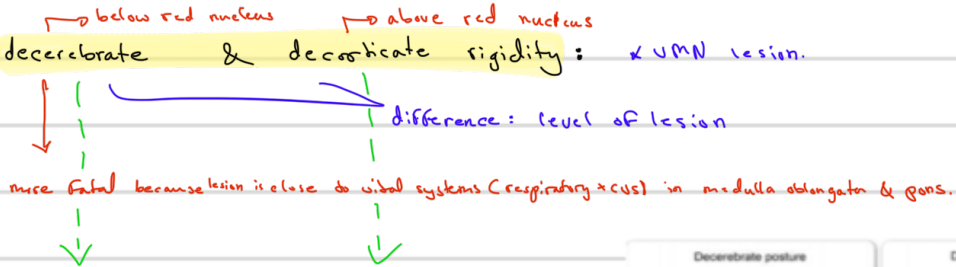 below red nucleus
above red nucleus
decerebrate & decorticate rigidity : * UMN lesion.
difference: level of lesion
more fatal because lesion is close to vital systems (respiratory * CVS) in medulla oblongata & pons.
Decerebrate posture
D